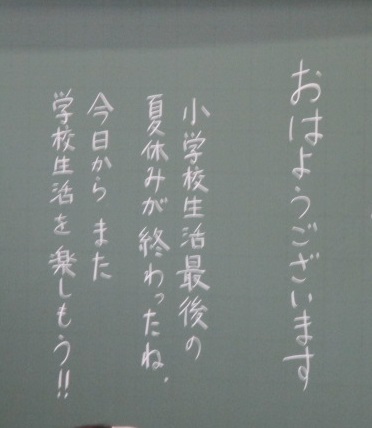 おはようございます
小学校生活最後の
夏休みが終わったね.
今日から また
学校生活を楽しもう!!